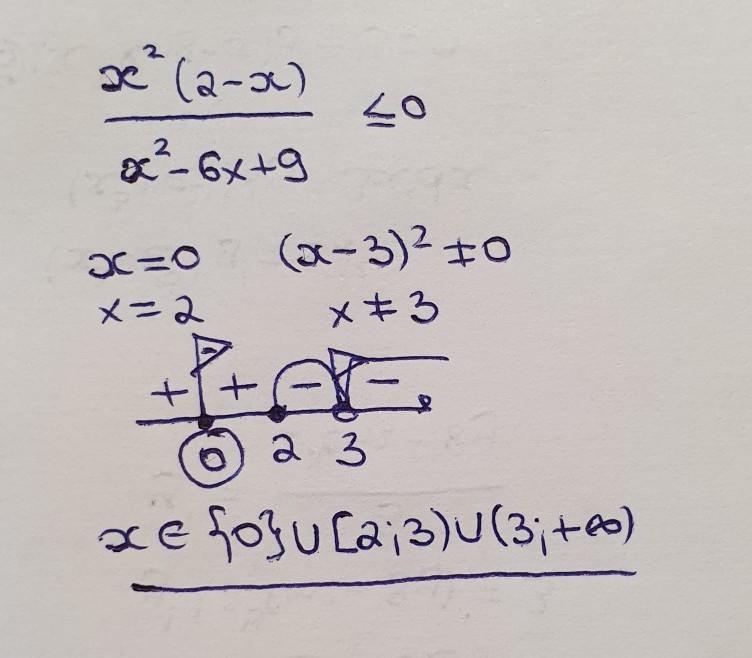 x²(2-x)
x²-6x+9
≤0
x=0 (x-3)²≠0
x=2 x≠3
+ + - -
0 2 3
x∈{0}∪[2;3)∪(3;+∞)